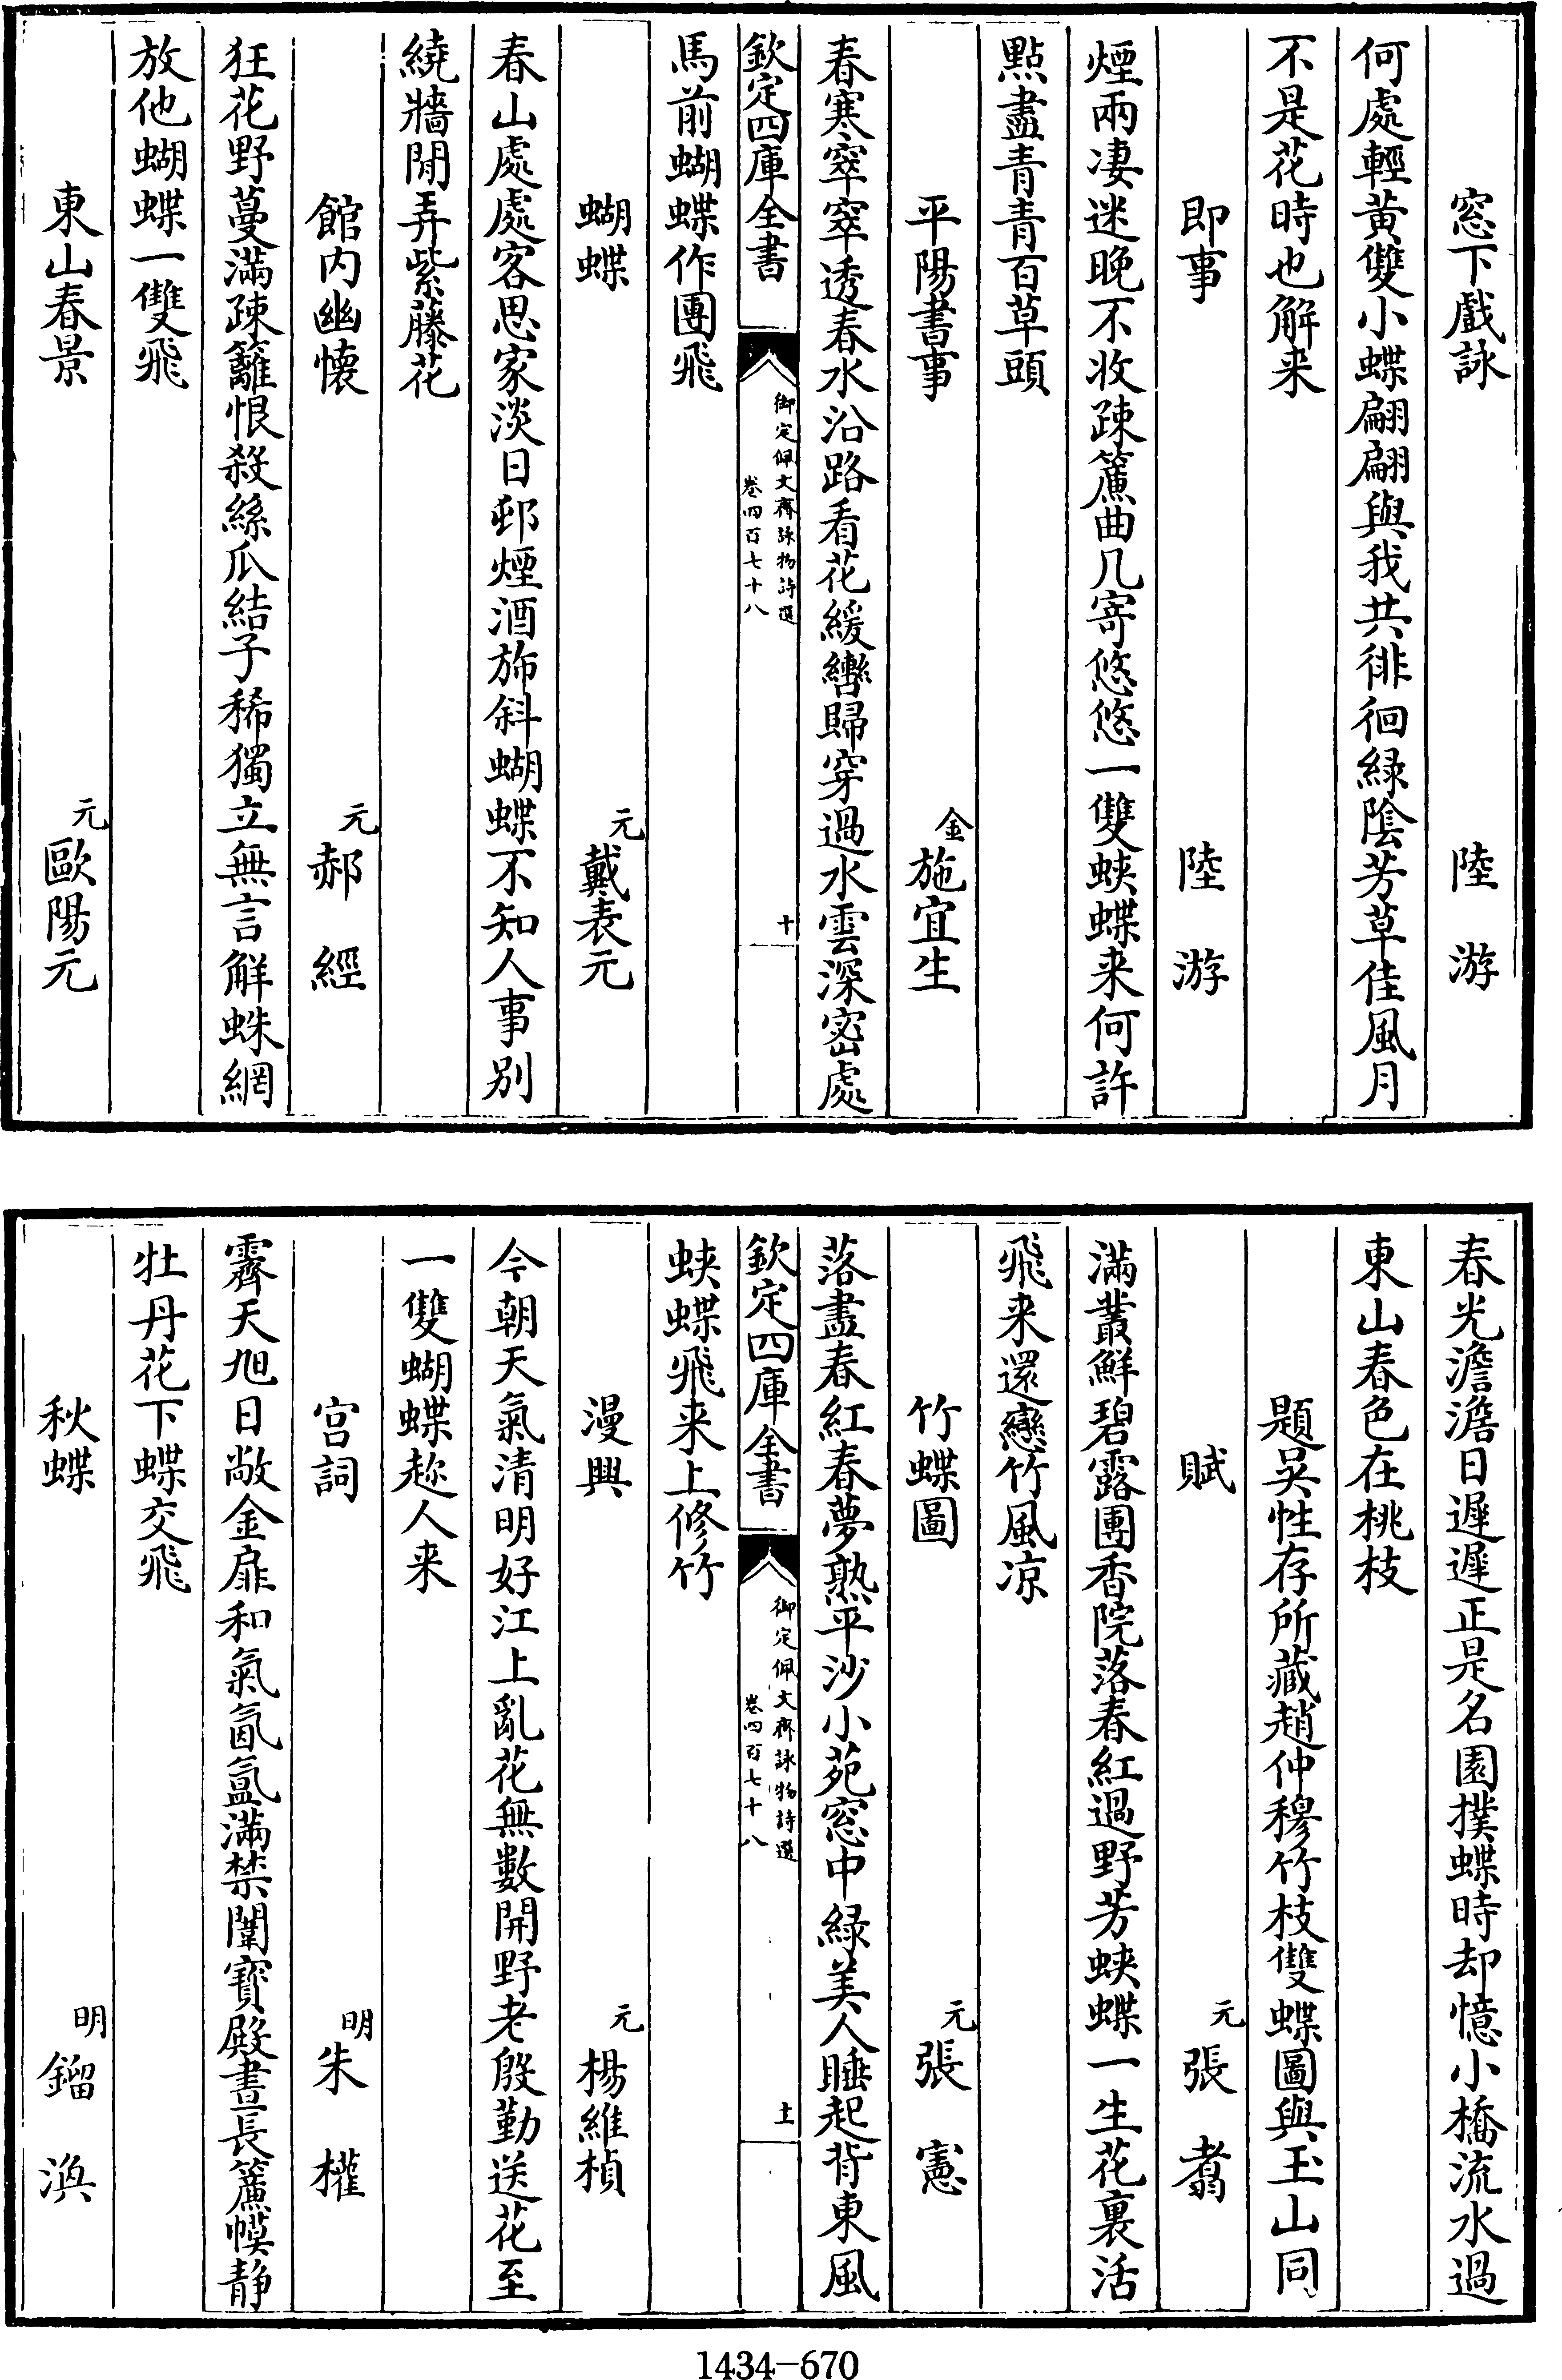 窓下戲詠　陸游
何處輕黃雙小蝶翩翩與我共徘徊緑隂芳草佳風月
不是花時也解来
即事　陸游
煙雨凄迷晚不收疎簾曲几寄悠悠一雙蛺蝶来何許
點盡青青百草頭
平陽書事　金施宜生
春寒窣窣透春水沿路看花緩轡歸穿過水雲深密處
馬前蝴蝶作團飛
欽定四庫全書　御定佩文齋詠物詩選　卷四百七十八　十
蝴蝶　元戴表元
春山處處客思家淡日邨煙酒斾斜蝴蝶不知人事别
繞牆閒弄紫藤花
館内幽懐　元郝經
狂花野蔓滿疎籬恨殺絲瓜結子稀獨立無言解蛛網
放他蝴蝶一雙飛
東山春景　元歐陽元
春光澹澹日遲遲正是名園撲蝶時却憶小橋流水過
東山春色在桃枝
題吳性存所藏趙仲穆竹枝雙蝶圖與玉山同
賦　元張翥
滿叢鮮碧露團香院落春紅過野芳蛺蝶一生花裏活
飛来還戀竹風凉
竹蝶圖　元張憲
落盡春紅春夢熟平沙小苑窓中緑美人睡起背東風
蛺蝶飛来上修竹
欽定四庫全書　御定佩文齋詠物詩選　卷四百七十八　十一
漫興　元楊維楨
今朝天氣清明好江上亂花無數開野老殷勤送花至
一雙蝴蝶趂人来
宫詞　明朱權
霽天旭日敞金扉和氣氤氲滿禁闈寳殿晝長簾幙静
牡丹花下蝶交飛
秋蝶　明鎦渙
1434-670